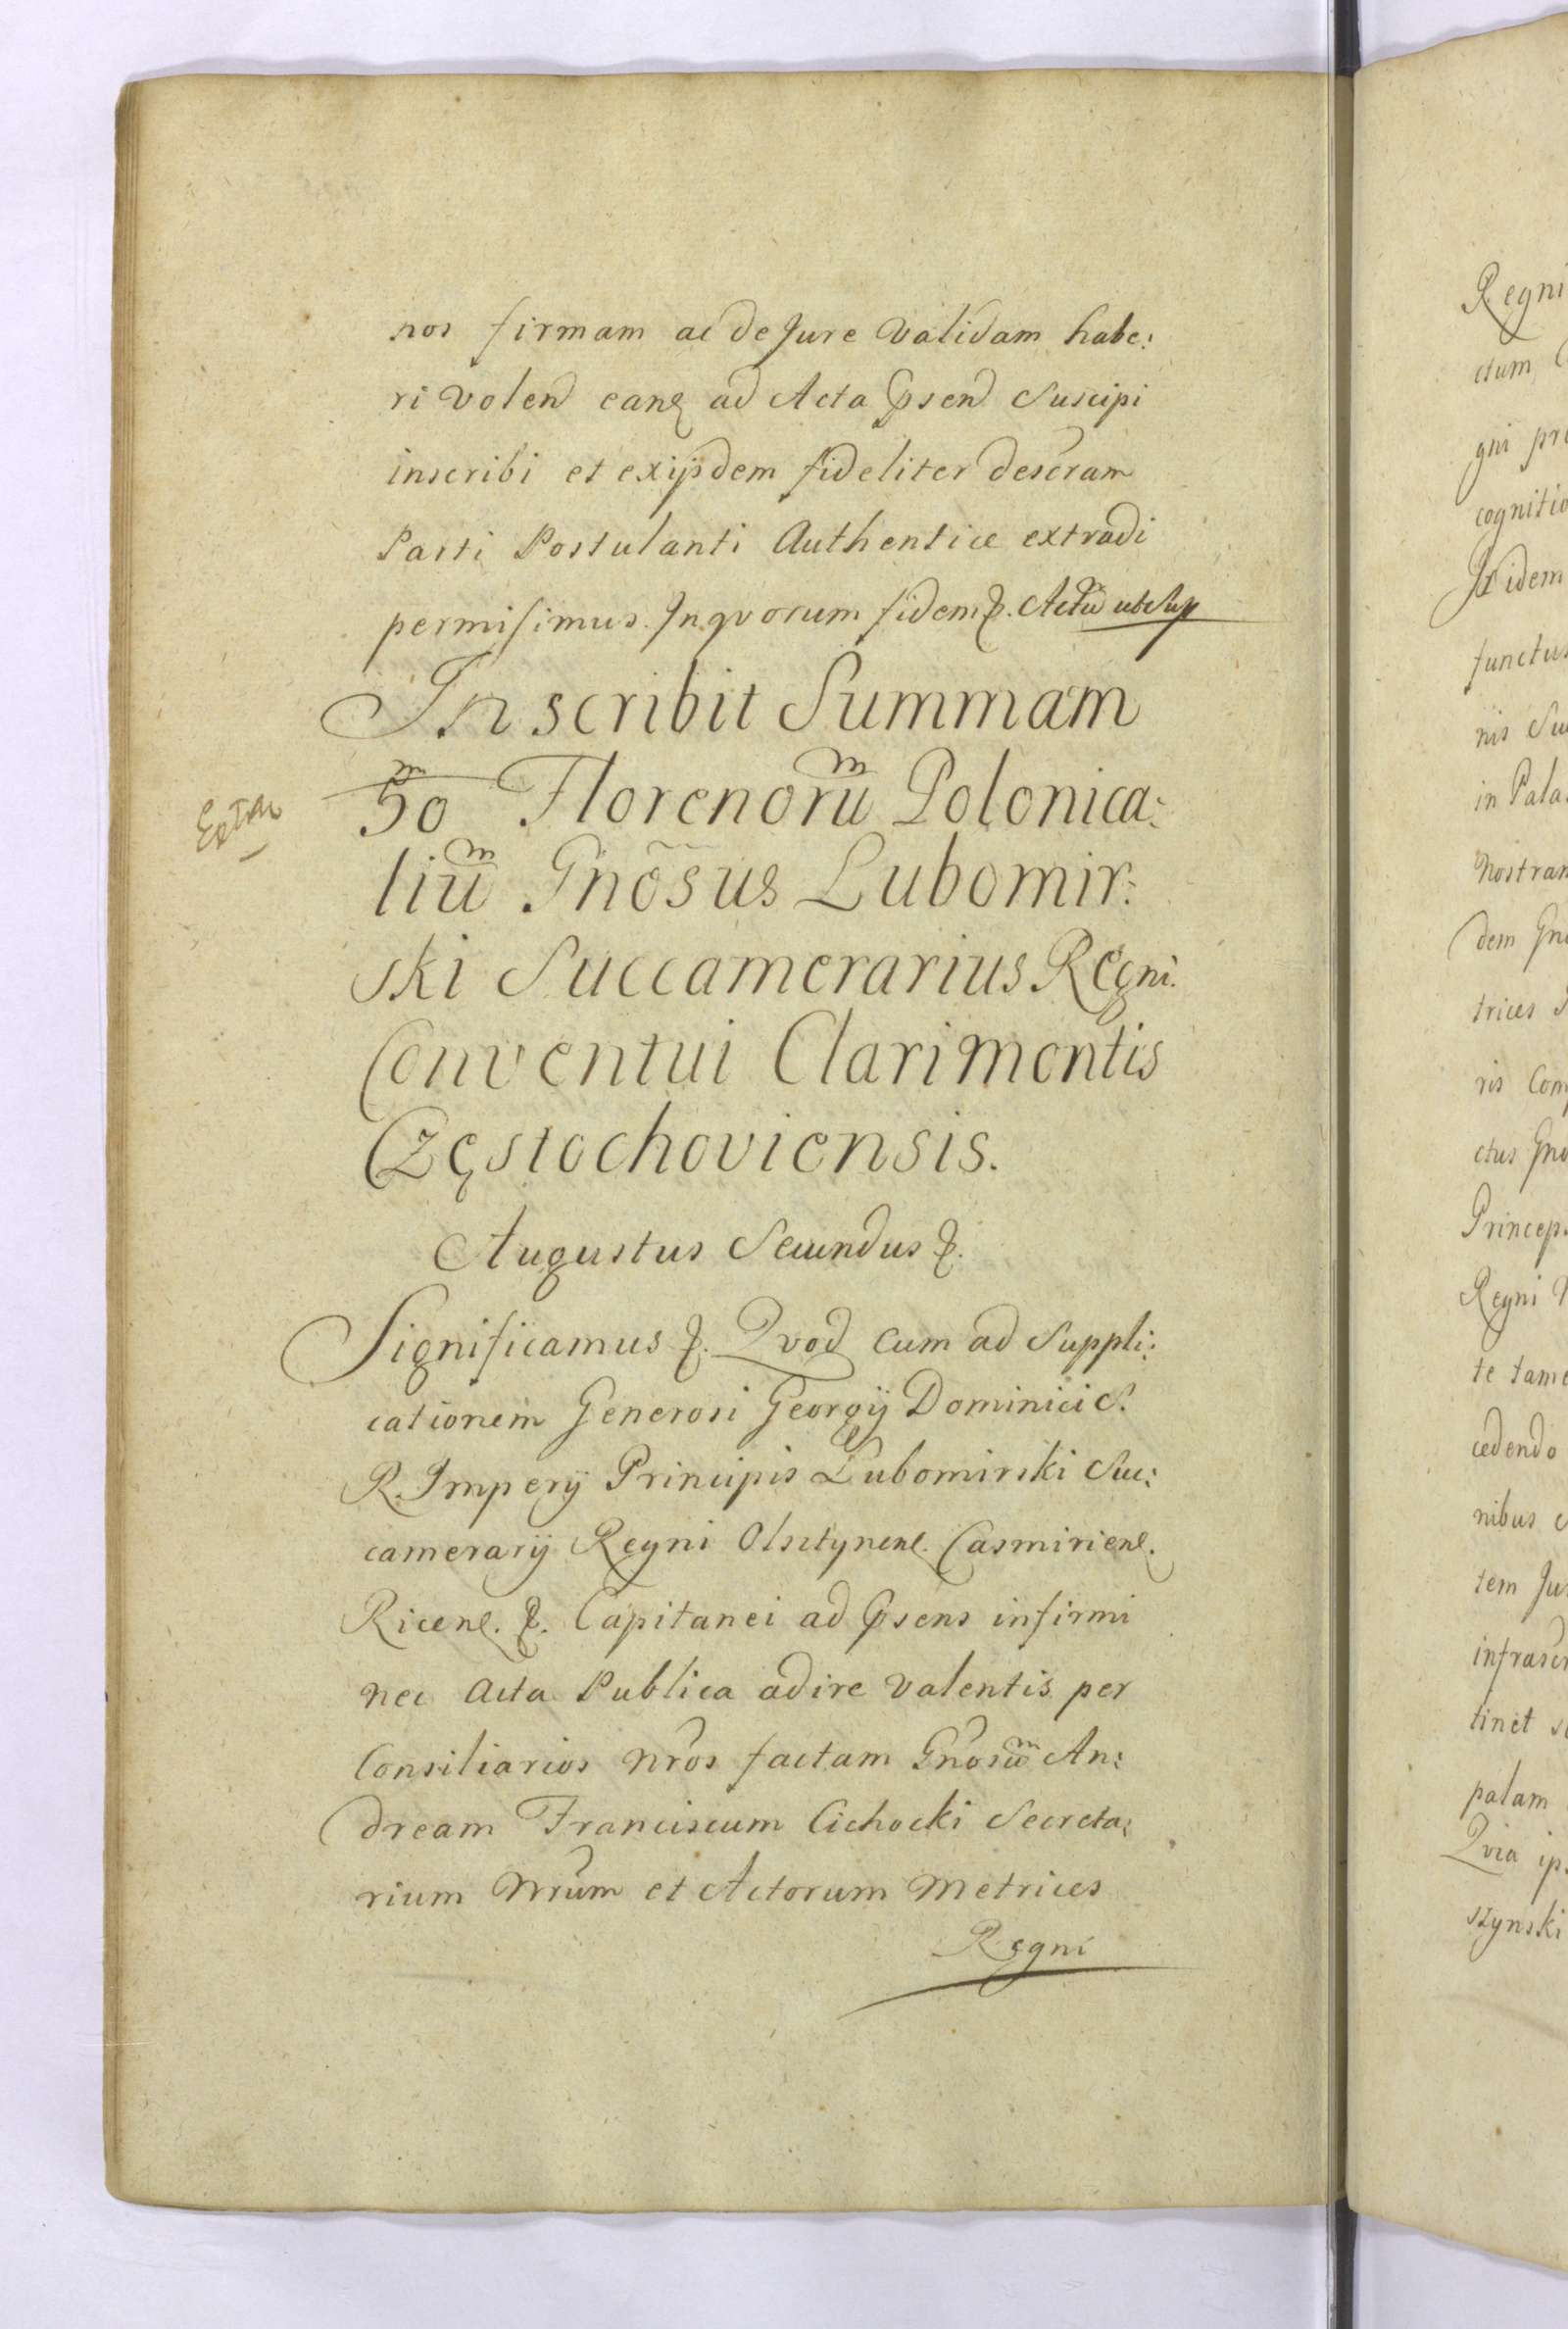 nos firmam ac de Jure Validam habe:
ri volend eanq ad Acta Ppsend Suscipi
inscribi et exijsdem fideliter descram
Parti Postulanti Authentice extradi
permisimus. In qvorum fidem &. Actū ut Sup
Inscribit Summam
50 m Florenorūm Polonica:
liūm Gnosus Lubomir:
ski Succamerarius Regni
Conventui Clarimontis
Częstochoviensis.
Augustus Secundus &.
Significamus &. Qvod Cum ad Suppli:
cationem Generosi Georgij Dominici S.
R. Imperij Principis Lubomirski Suc:
camerarij Regni Olsztynens. Casmiriens.
Ricens. &. Capitanei ad Ppsens infirmi
nec Acta Publica adire valentis per
Consiliarios Nros factam Gnosūm An:
dream Franciscum Cichocki Secreta:
rium Nrum et Actorum Metrices
Regni
Regni
ctum
gni
cognitio
Ibidem
functus
nis
in Pala
Nostram
dem Gno
trices
ris Com
ctus Gno
Princeps
Regni
te tame
cedendo
nibus
tem Ju
infrascr
tinet
palam
Qvia ip
szynski